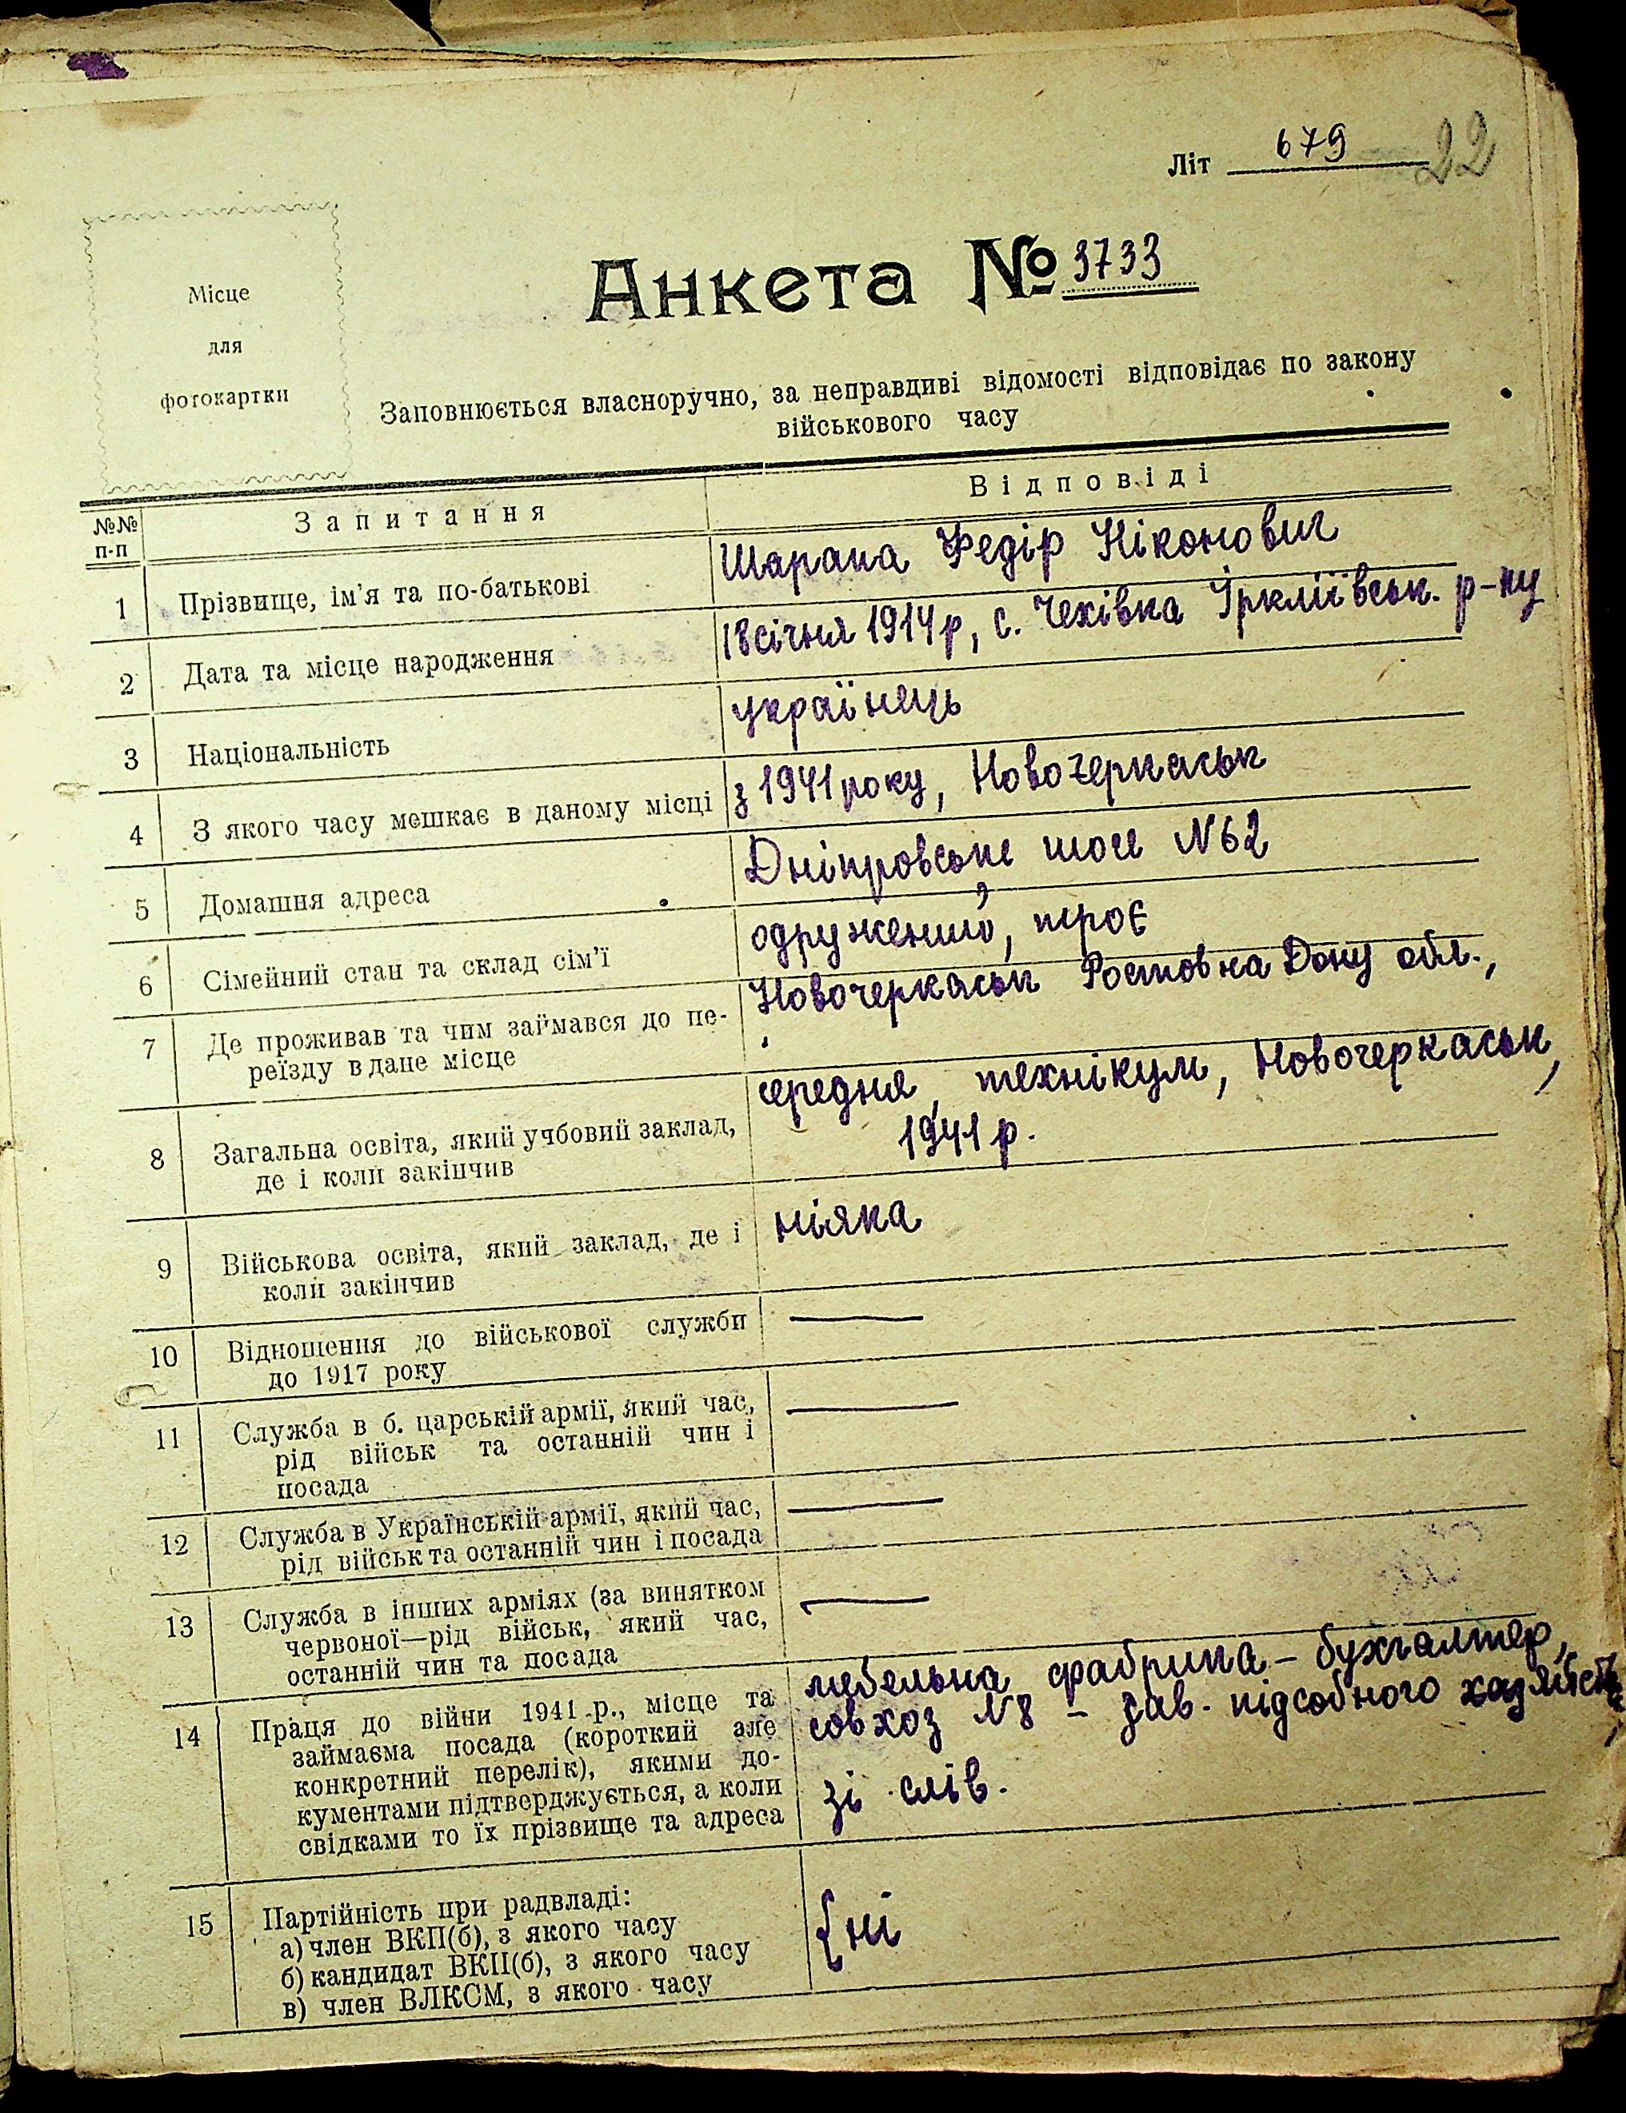 Літ 679 22
Місце
для
фотокартки
Анкета № 3733
Заповнюється власноручно, за неправдиві відомості відповідає по закону
військового часу
№№
п-п
Запитання
Відповіді
1 Прізвище, ім'я та по-батькові
Шарапа Федір Ніконович
2 Дата та місце народження
18 січня 1914 р, с. Чехівка Іркліївськ. р-ну
3 Національність
українець
4 З якого часу мешкає в даному місці
з 1941 року, Новочеркаськ
5 Домашня адреса
Дніпровське шосе №62
6 Сімейний стан та склад сім'ї
одружений, троє
7 Де проживав та чим займався до пе-
реїзду в дане місце
Новочеркаськ Ростов на Дону обл.,
8 Загальна освіта, який учбовий заклад,
де і коли закінчив
середня, технікум, Новочеркаськ,
1941 р.
9 Військова освіта, який заклад, де і
коли закінчив
ніяка
10 Відношення до військової служби
до 1917 року
—
11 Служба в б. царській армії, який час,
рід військ та останній чин і
посада
—
12 Служба в Українській армії, який час,
рід військ та останній чин і посада
—
13 Служба в інших арміях (за винятком
червоної—рід військ, який час,
останній чин та посада
—
14 Праця до війни 1941 р., місце та
займаєма посада (короткий але
конкретний перелік), якими до-
кументами підтверджується, а коли
свідками то їх прізвище та адреса
мебельна фабрика – бухгалтер,
совхоз №8 – зав. підсобного
зі слів.
15 Партійність при радвладі:
а) член ВКП(б), з якого часу
б) кандидат ВКП(б), з якого часу
в) член ВЛКСМ, з якого часу
{ні